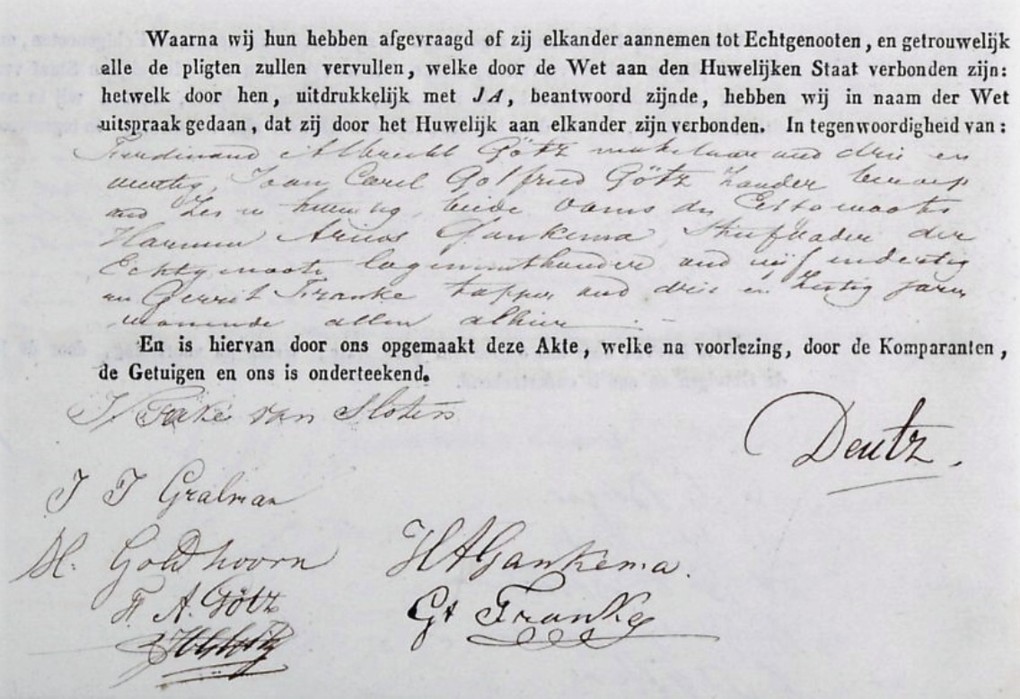 Waarna wij hun hebben afgevraagd of zij elkander aannemen tot Echtgenooten, en getrouwelijk
alle de pligten zullen vervullen, welke door de Wet aan den Huwelijken Staat verbonden zijn:
hetwelk door hen, uitdrukkelijk met JA, beantwoord zijnde, hebben wij in naam der Wet
uitspraak gedaan, dat zij door het Huwelijk aan elkander zijn verbonden. In tegenwoordigheid van:
Ferdinand Albrecht Götz makelaar oud drie en
veertig, Joan Carel Gotfried Götz zonder beroep
oud zes en twintig, beide
Harmen Arnos Gankema Stiefvader der
Echtgenoote, logementhouder oud vijf en dertig
en Gerrit Franke tapper oud drie en zestig jaren
wonende allen alhier
En is hiervan door ons opgemaakt deze Akte, welke na voorlezing, door de Komparanten,
de Getuigen en ons is onderteekend.
van Sloten
Deutz.
J J Gralman
H. Goldhoorn
HAGankema.
F A. Götz
Gt Franke